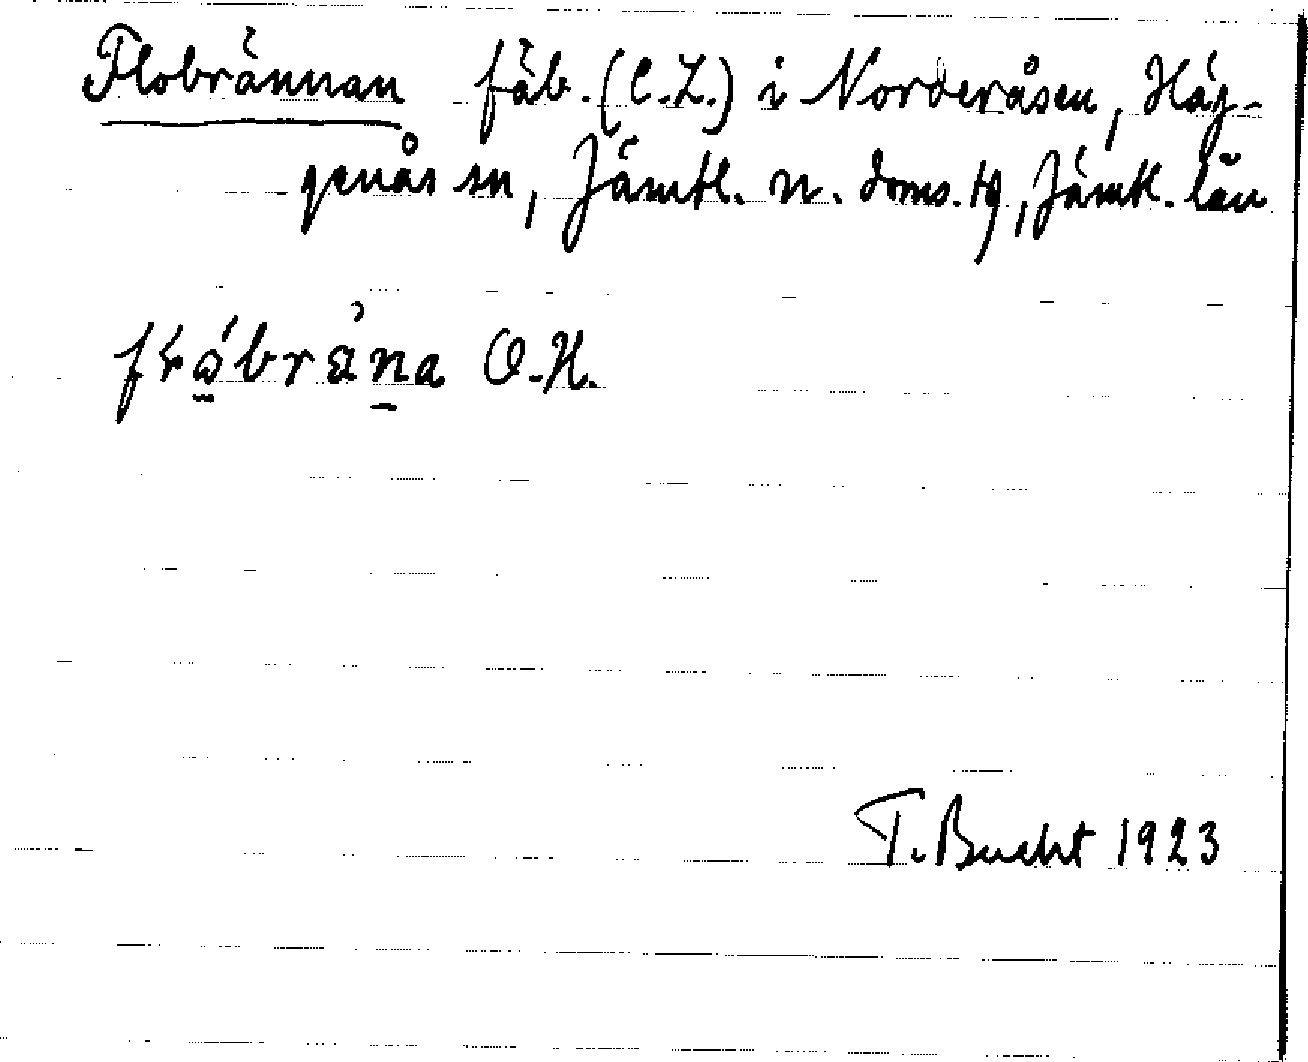 Flobrännan fäb. (C.L.) i Norderåsen, Häg-
genås sn, Jämtl. n. doms.tg, Jämtl. län
O.H.
T. Bucht 1923